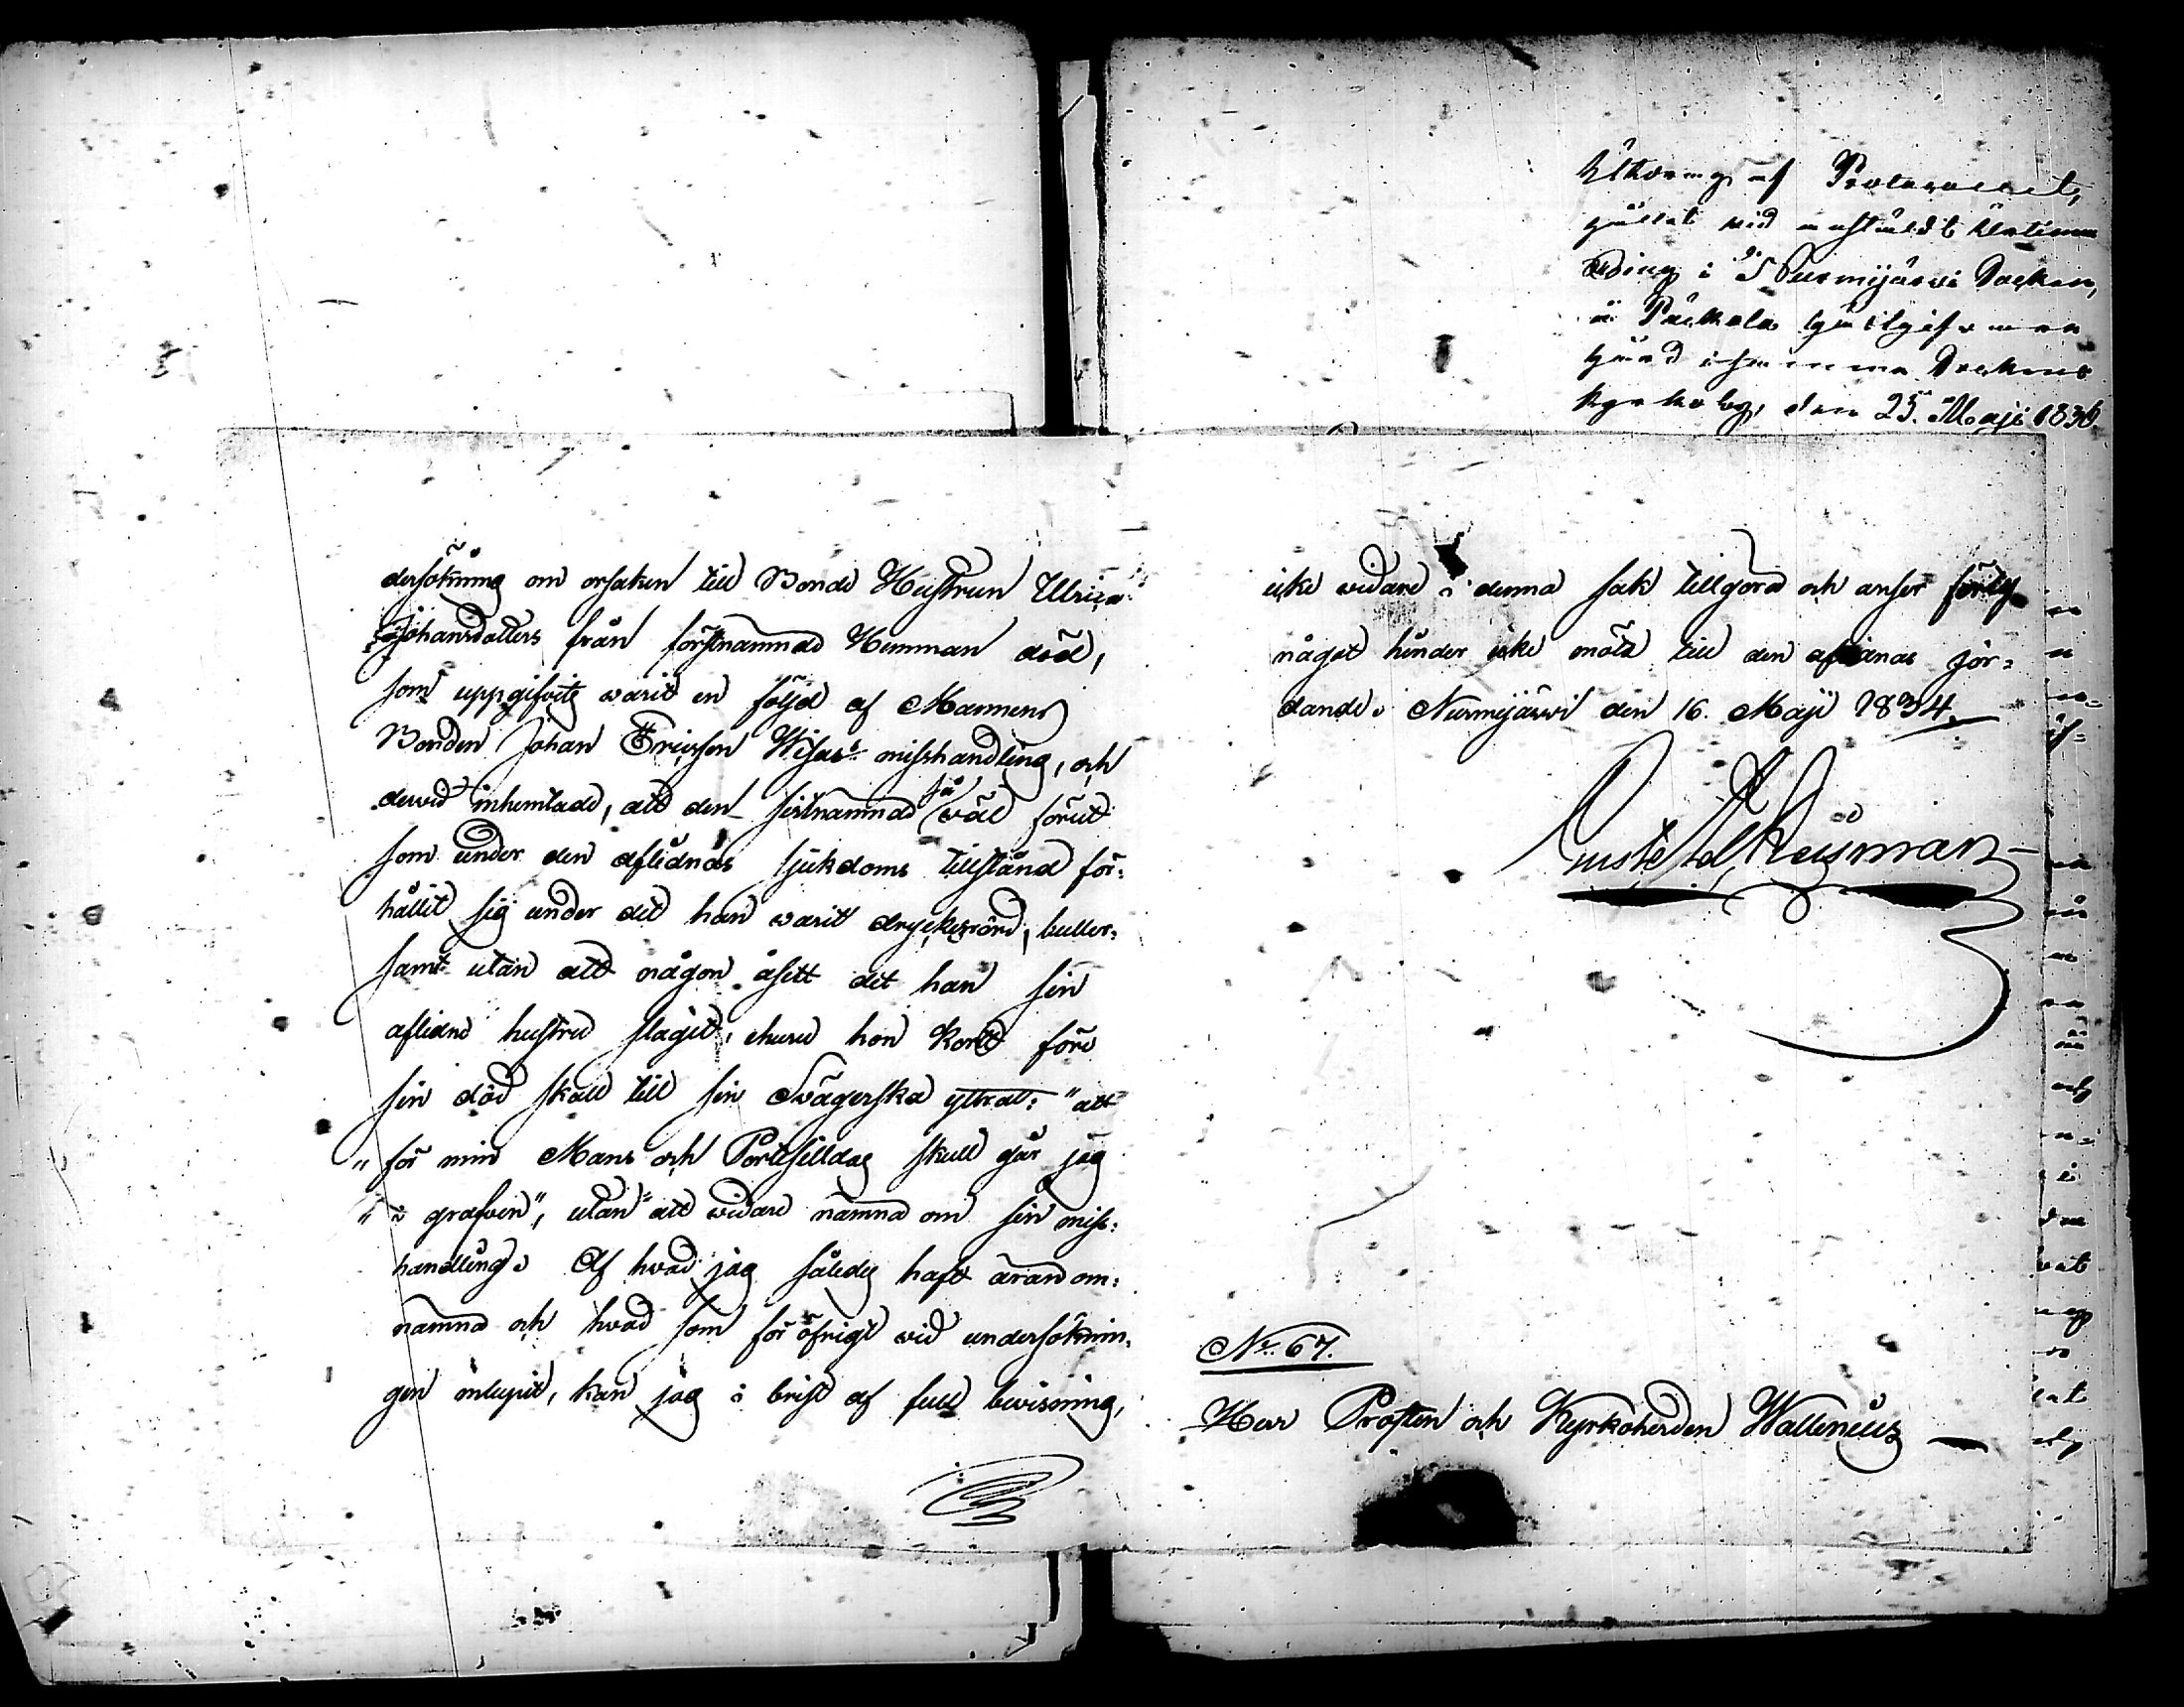 Utdrag af Protocollet,
hållit vid anstäldt Urtima
Ting i Nurmijärvi Socken,
å Palkala Gästgifvare
gård i samma Sockens
kyrkoby, den 25. Maji 1834
dersökning om orsaken till Bonde Hustrun Ulrica
Johansdotters från förstnämnde Hemman död,
som uppgifvits warit en följd af Mannens
Bonden Johan Ericsson Wisas misshandling, och
dervid inhemtade, att den sistnämnde så wäl förut
som under den aflidnas sjukdoms tillstånd för=
hållit sig under det han warit dryckesrörd, buller=
samt utan att någon åsett det han sin
aflidne hustru slagit, ehuru hon kort före
sin död skall till sin Svägerska yttrat: "att
" för min Mans och skull går jag
" i grafven", utan att vidare nämna om sin miss=
handling. Af hvad jag således haft äran om=
nämna och hvad som för öfrigt vid undersöknin=
gen inlupit, kan jag i brist af full bevisning,
icke vidare i denna sak tillgöra och anser
något hinder icke möta till den aflidnas jor=
dande. Nurmijärvi den 16. Maji 1834.
No. 67.
Herr Prosten och Kyrkoherden Wallenius